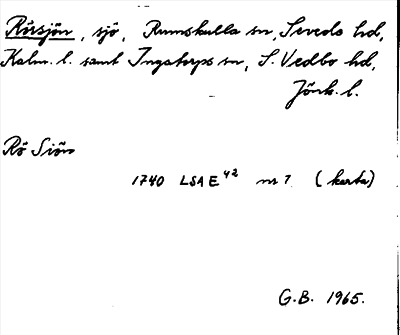 Rösjön, sjö, Rumskulla sn, Sevede hd,
Kalm. l. samt Ingatorps sn, S. Vedbo hd,
Jönk. l.
Rö Siön
1740 LSA E 42 nr 7 (karta)
G.B. 1965.